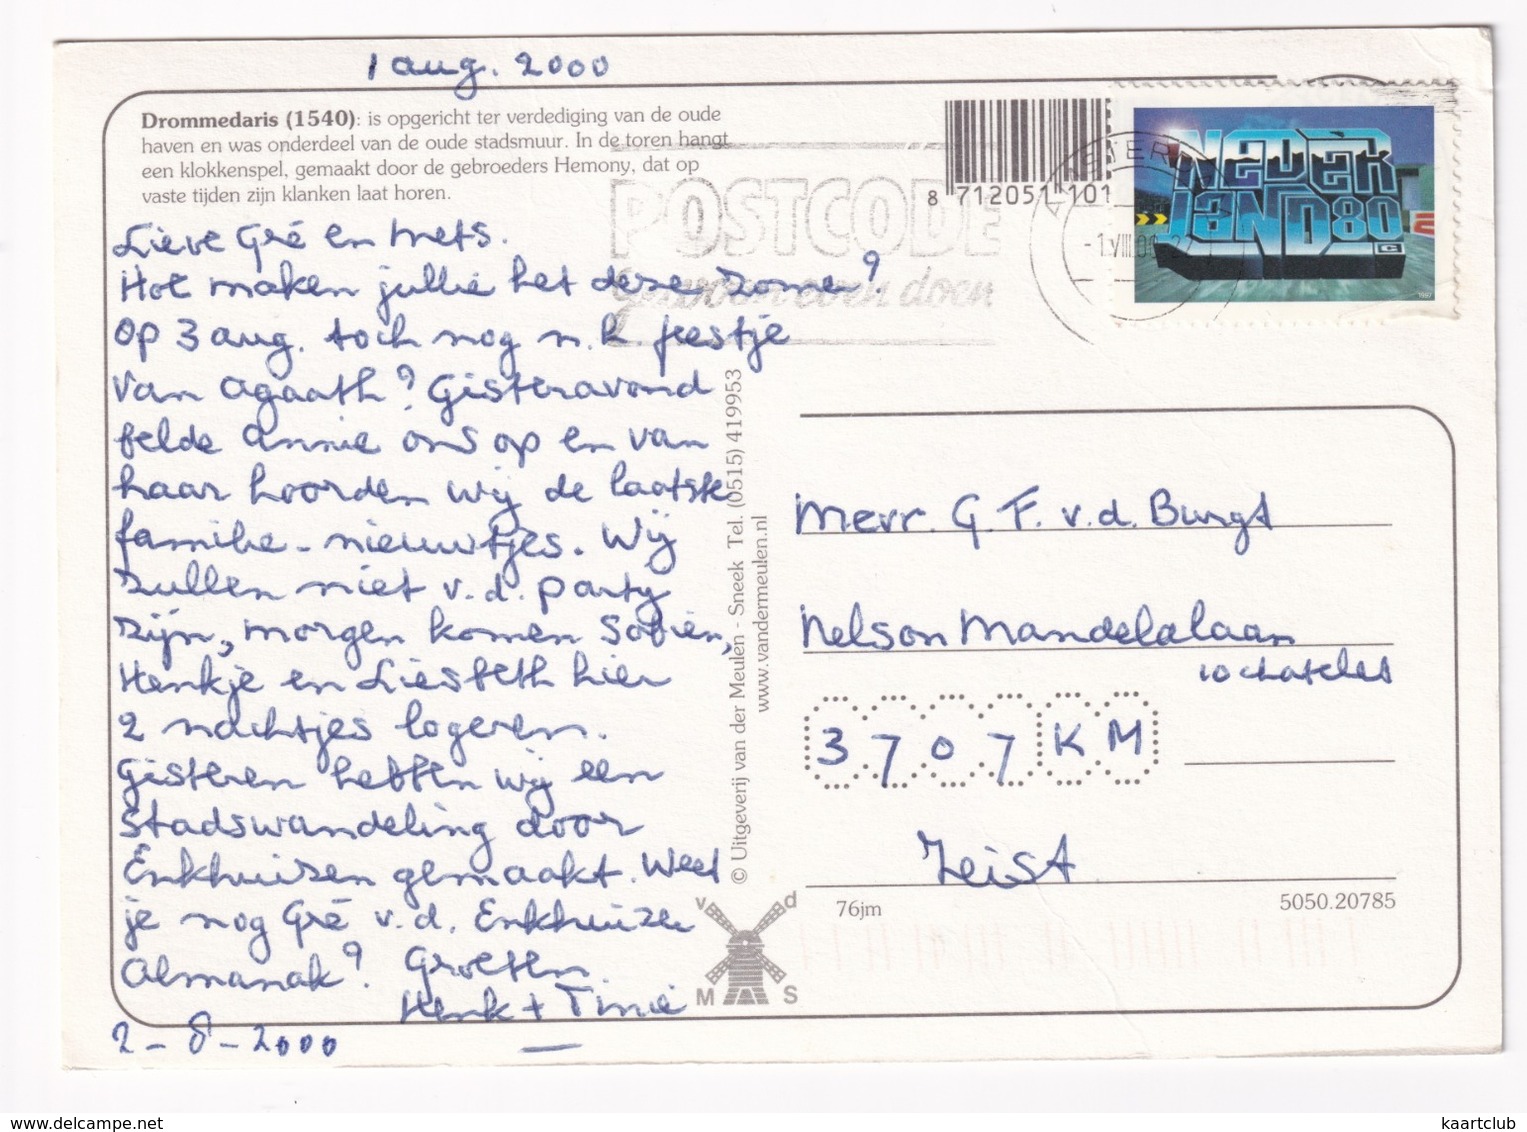 1 aug. 2000
Drommedaris (1540): is opgericht ter verdediging van de oude
haven en was onderdeel van de oude stadsmuur. In de toren hangt
een klokkenspel, gemaakt door de gebroeders Hemony, dat op
vaste tijden zijn klanken laat horen.
Lieve Gré en Mets.
Hoe maken jullie het deze zomer?
Op 3 aug. toch nog n.h feestje
van Agaath? Gisteravond
belde Annie ons op en van
haar hoorden wij de laatste
familie-nieuwtjes. Wij
zullen niet v.d. party
zijn, morgen komen Sobien,
Henkje en Liesbeth hier
2 nachtjes logeren.
Gisteren hebben wij een
stadswandeling door
Enkhuizen gemaakt. Weet
je nog Gré v.d. Enkhuizer
Almanak? Groeten.
Henk + Tinie
2-8-2000
© Uitgeverij van der Meulen - Sneek Tel. (0515) 419953
www.vandermeulen.nl
v d
M S
8 712051 101
POSTCODE
gewoon even doen
-1.VIII.00
NEDERLAND 80 c
1997
Mevr. G. F. v.d. Burgt
Nelson Mandelalaan
10
3707 KM
Zeist
76jm
5050.20785
kaartclub
www.delcampe.net